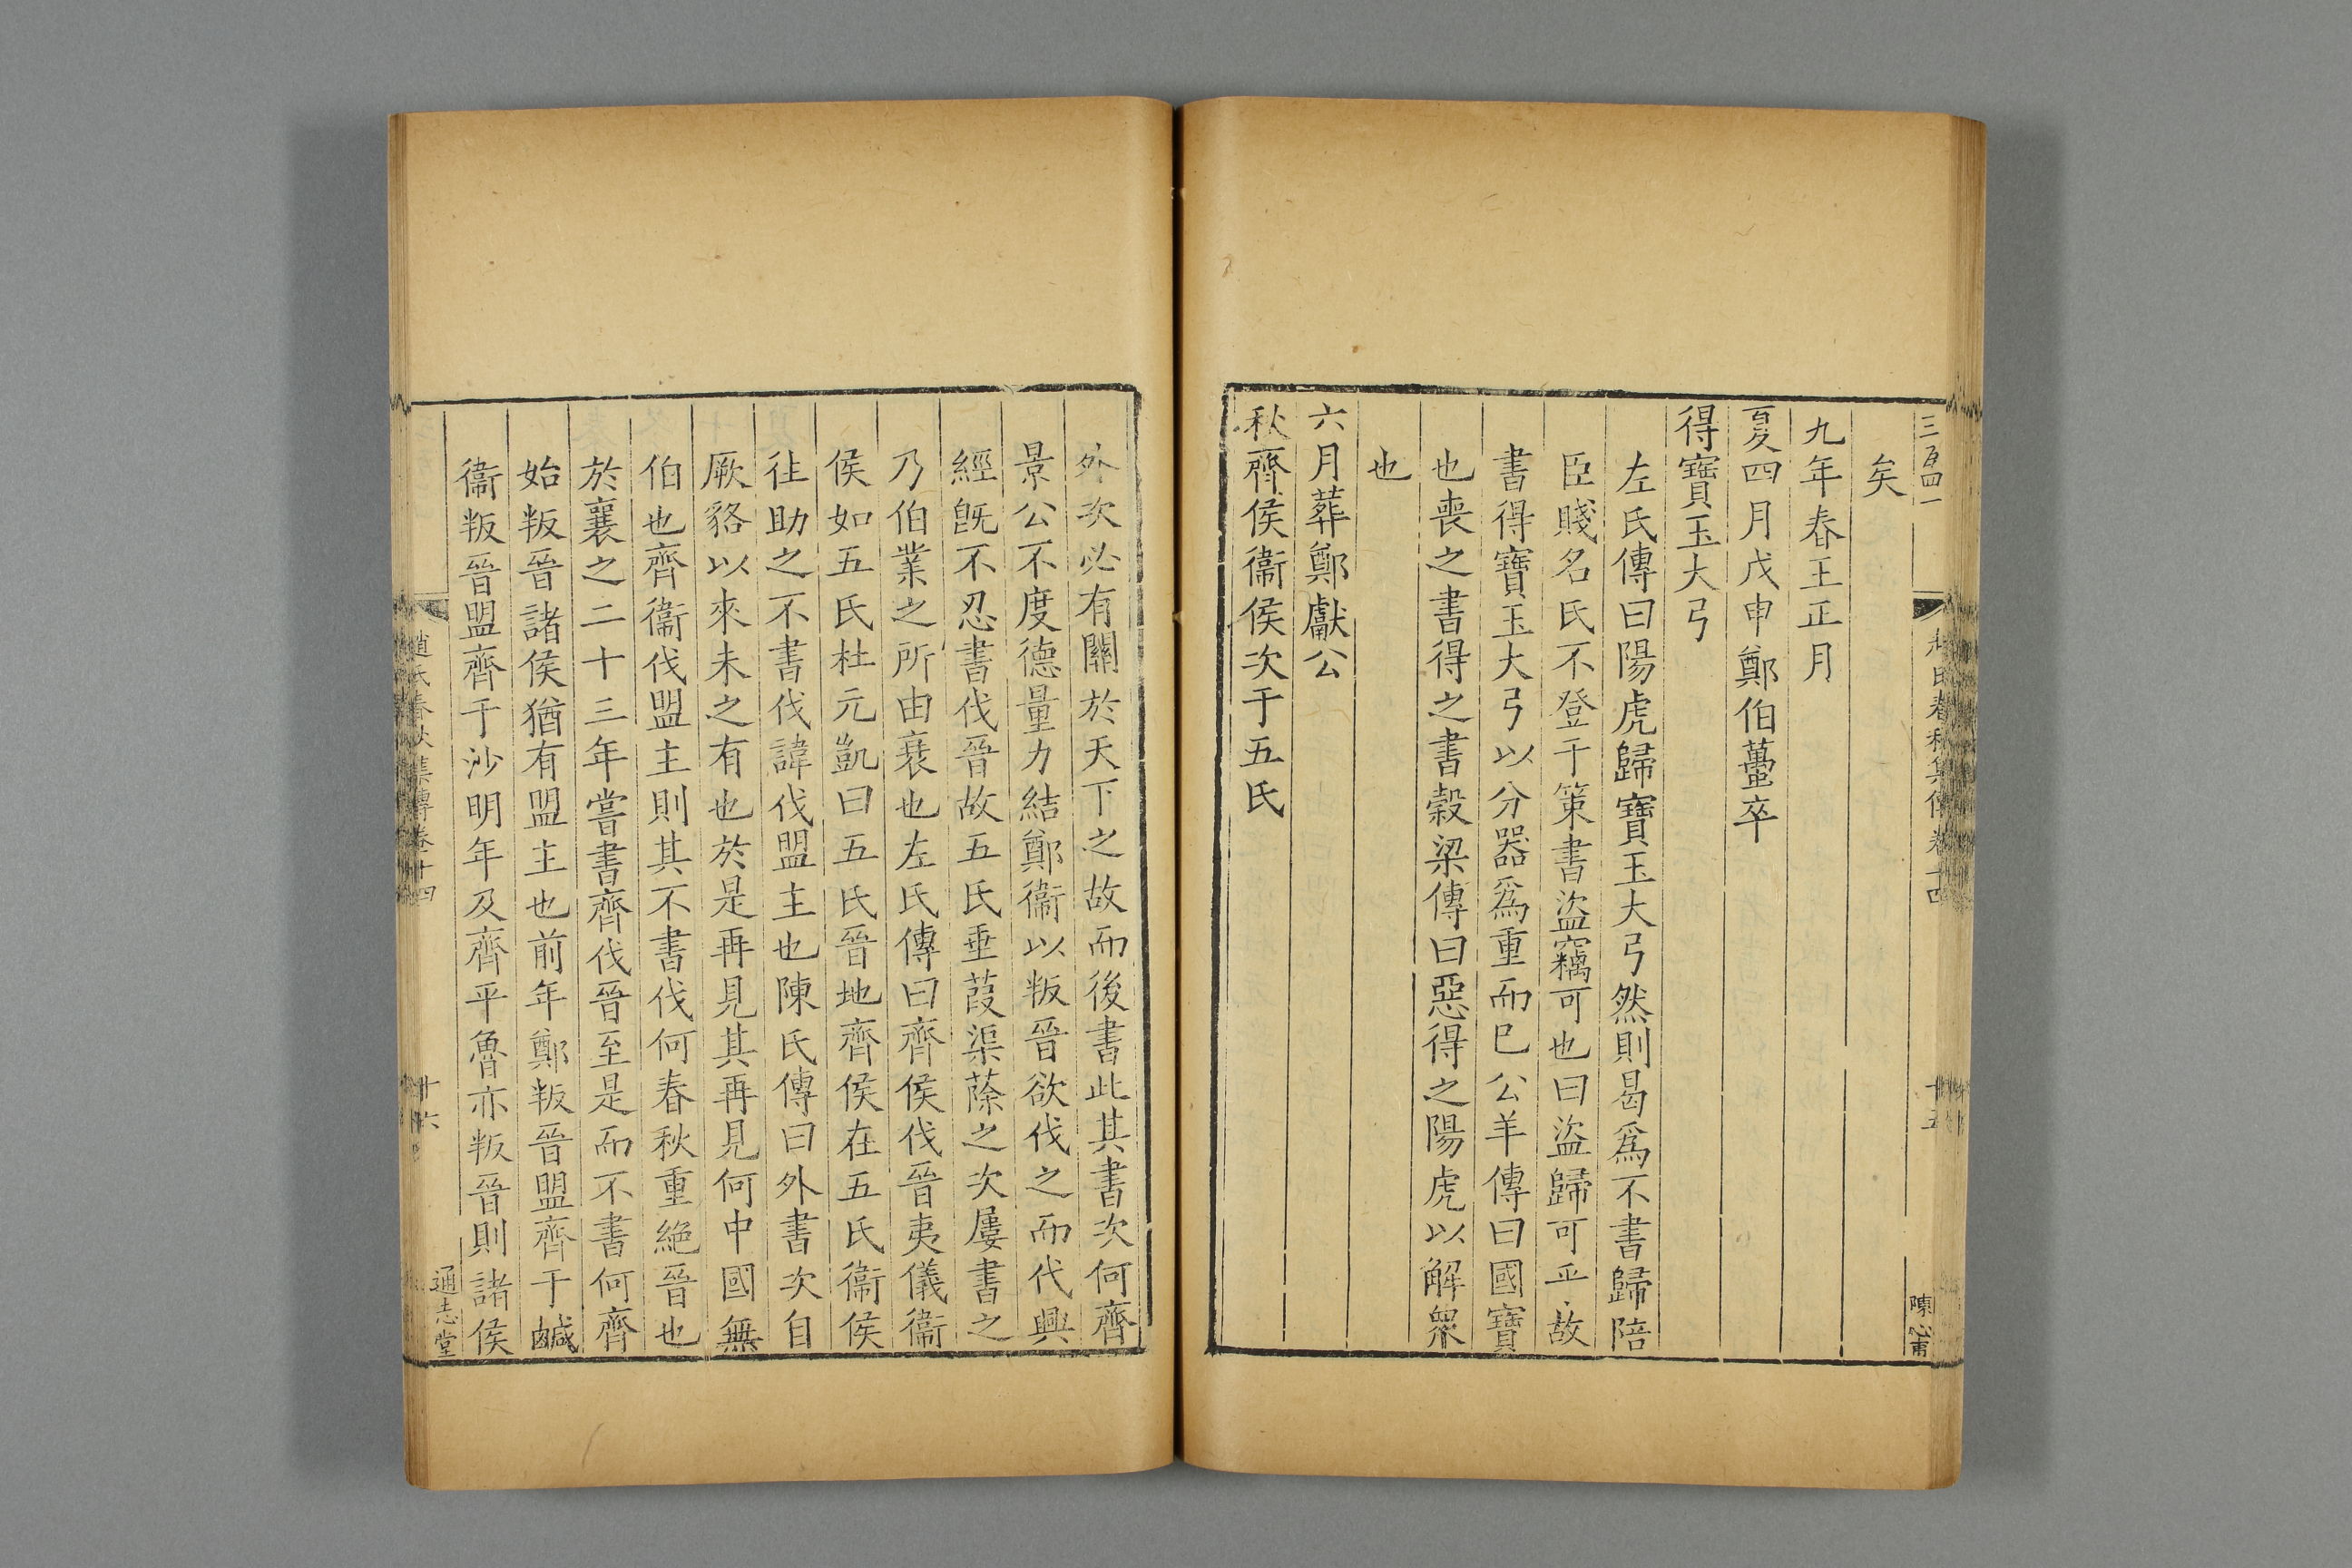 矣
九年春王正月
夏四月戊申鄭伯蠆卒
得寶玉大弓
左氏傳曰陽虎歸寶玉大弓然則曷爲不書歸陪
臣賤名氏不登于策書盜竊可也曰盜歸可乎故
書得寶玉大弓以分器爲重而巳公羊傳曰國寶
也喪之書得之書榖梁傳曰惡得之陽虎以解衆
也
六月葬鄭獻公
秋齊侯衞侯次于五氏
外次必有關於天下之故而後書此其書次何齊
景公不度德量力結鄭衞以叛晉欲伐之而代興
經旣不忍書伐晉故五氏垂葭渠蒢之次屢書之
乃伯業之所由衰也左氏傳曰齊侯伐晉夷儀衞
侯如五氏杜元凱曰五氏晉地齊侯在五氏衞侯
往助之不書伐諱伐盟主也陳氏傳曰外書次自
厥貉以來未之有也於是再見其再見何中國無
伯也齊衞伐盟主則其不書伐何春秋重絕晉也
於襄之二十三年嘗書齊伐晉至是而不書何齊
始叛晉諸侯猶有盟主也前年鄭叛晉盟齊于鹹
衞叛晉盟齊于沙明年及齊平魯亦叛晉則諸侯
趙氏春秋集傳卷十四
十六
通志堂